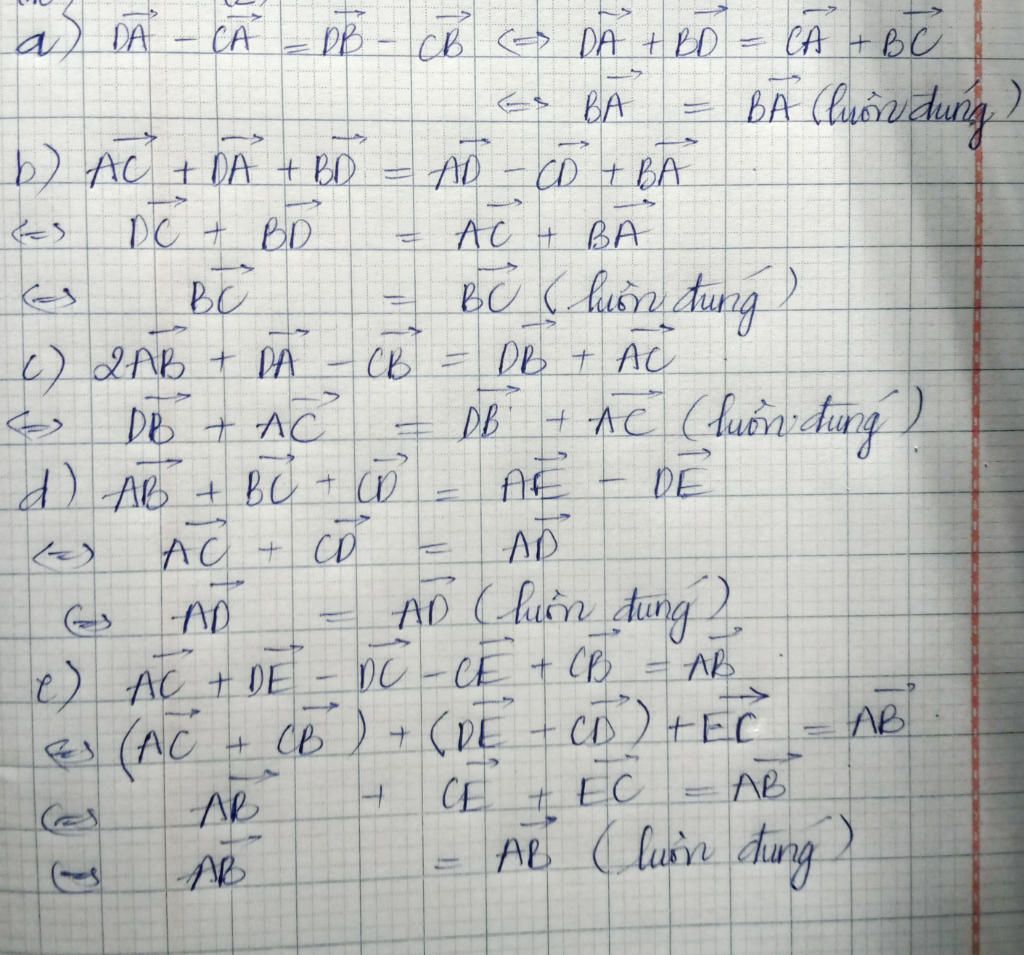 a) $\overrightarrow{DA} - \overrightarrow{CA} = \overrightarrow{DB} - \overrightarrow{CB} \Leftrightarrow \overrightarrow{DA} + \overrightarrow{BD} = \overrightarrow{CA} + \overrightarrow{BC}$
$\Leftrightarrow \overrightarrow{BA} = \overrightarrow{BA}$ (luôn đúng)
b) $\overrightarrow{AC} + \overrightarrow{DA} + \overrightarrow{BD} = \overrightarrow{AD} - \overrightarrow{CD} + \overrightarrow{BA}$
$\Leftrightarrow \overrightarrow{DC} + \overrightarrow{BD} = \overrightarrow{AC} + \overrightarrow{BA}$
$\Leftrightarrow \overrightarrow{BC} = \overrightarrow{BC}$ (luôn đúng)
c) $2\overrightarrow{AB} + \overrightarrow{DA} - \overrightarrow{CB} = \overrightarrow{DB} + \overrightarrow{AC}$
$\Leftrightarrow \overrightarrow{DB} + \overrightarrow{AC} = \overrightarrow{DB} + \overrightarrow{AC}$ (luôn đúng)
d) $\overrightarrow{AB} + \overrightarrow{BC} + \overrightarrow{CD} = \overrightarrow{AE} - \overrightarrow{DE}$
$\Leftrightarrow \overrightarrow{AC} + \overrightarrow{CD} = \overrightarrow{AD}$
$\Leftrightarrow \overrightarrow{AD} = \overrightarrow{AD}$ (luôn đúng)
e) $\overrightarrow{AC} + \overrightarrow{DE} - \overrightarrow{DC} - \overrightarrow{CE} + \overrightarrow{CB} = \overrightarrow{AB}$
$\Leftrightarrow (\overrightarrow{AC} + \overrightarrow{CB}) + (\overrightarrow{DE} + \overrightarrow{CD}) + \overrightarrow{EC} = \overrightarrow{AB}$
$\Leftrightarrow \overrightarrow{AB} + \overrightarrow{CE} + \overrightarrow{EC} = \overrightarrow{AB}$
$\Leftrightarrow \overrightarrow{AB} = \overrightarrow{AB}$ (luôn đúng)